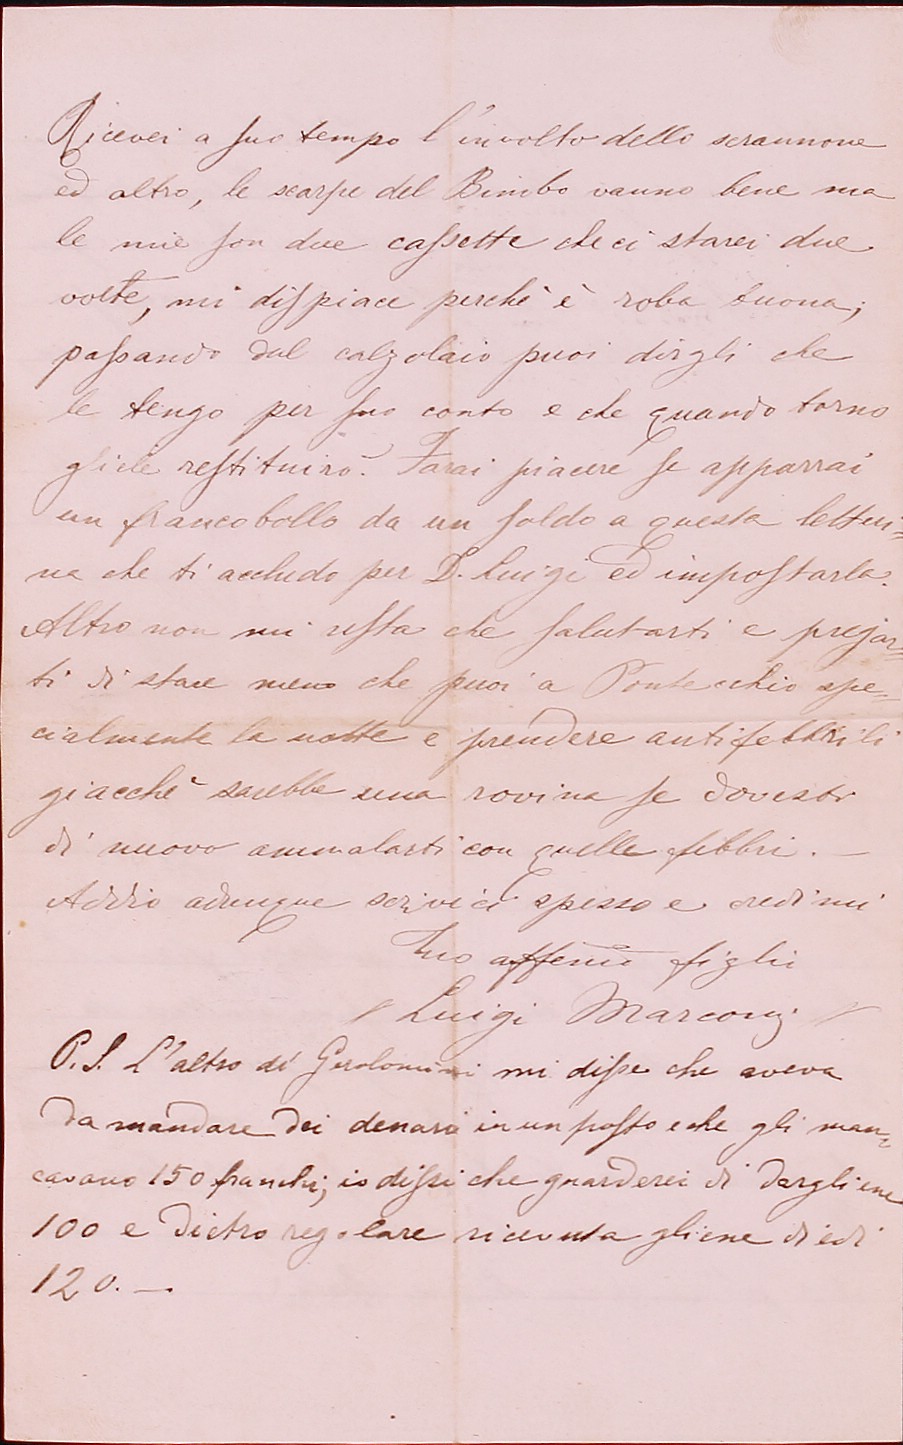 Ricevei a suo tempo l'involto dello scrannone
ed altro, le scarpe del Bimbo vanno bene ma
le mie son due cassette che ci starei due
volte, mi dispiace perchè è roba buona;
passando dal calzolaio puoi dirgli che
le tengo per suo conto e che quando torno
gliele restituirò. Farai piacere se apporrai
un francobollo da un soldo a questa letteri=
na che ti accludo per D. Luigi ed impostarla.
Altro non mi resta che salutarti e pregar=
ti di stare meno che puoi a Pontecchio spe=
cialmente la notte e prendere antifebbrili
giacchè sarebbe una rovina se dovesti
di nuovo ammalarti con quelle febbri. —
Addio adunque scrivici spesso e credimi
tuo affemo figlio
Luigi Marconi
P.S. L'altro dí Gerolomini mi disse che aveva
da mandare dei denari in un posto e che gli man=
cavano 150 franchi; io dissi che guarderei di dargliene
100 e dietro regolare ricevuta gliene diedi
120. —